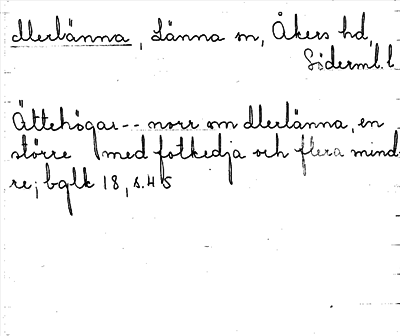 Merlänna, Länna sn, Åkers hd,
Söderml. l
Ättehögar -- norr om Merlänna, en
större med fotkedja och flera mind-
re; bglk 18, s. 45